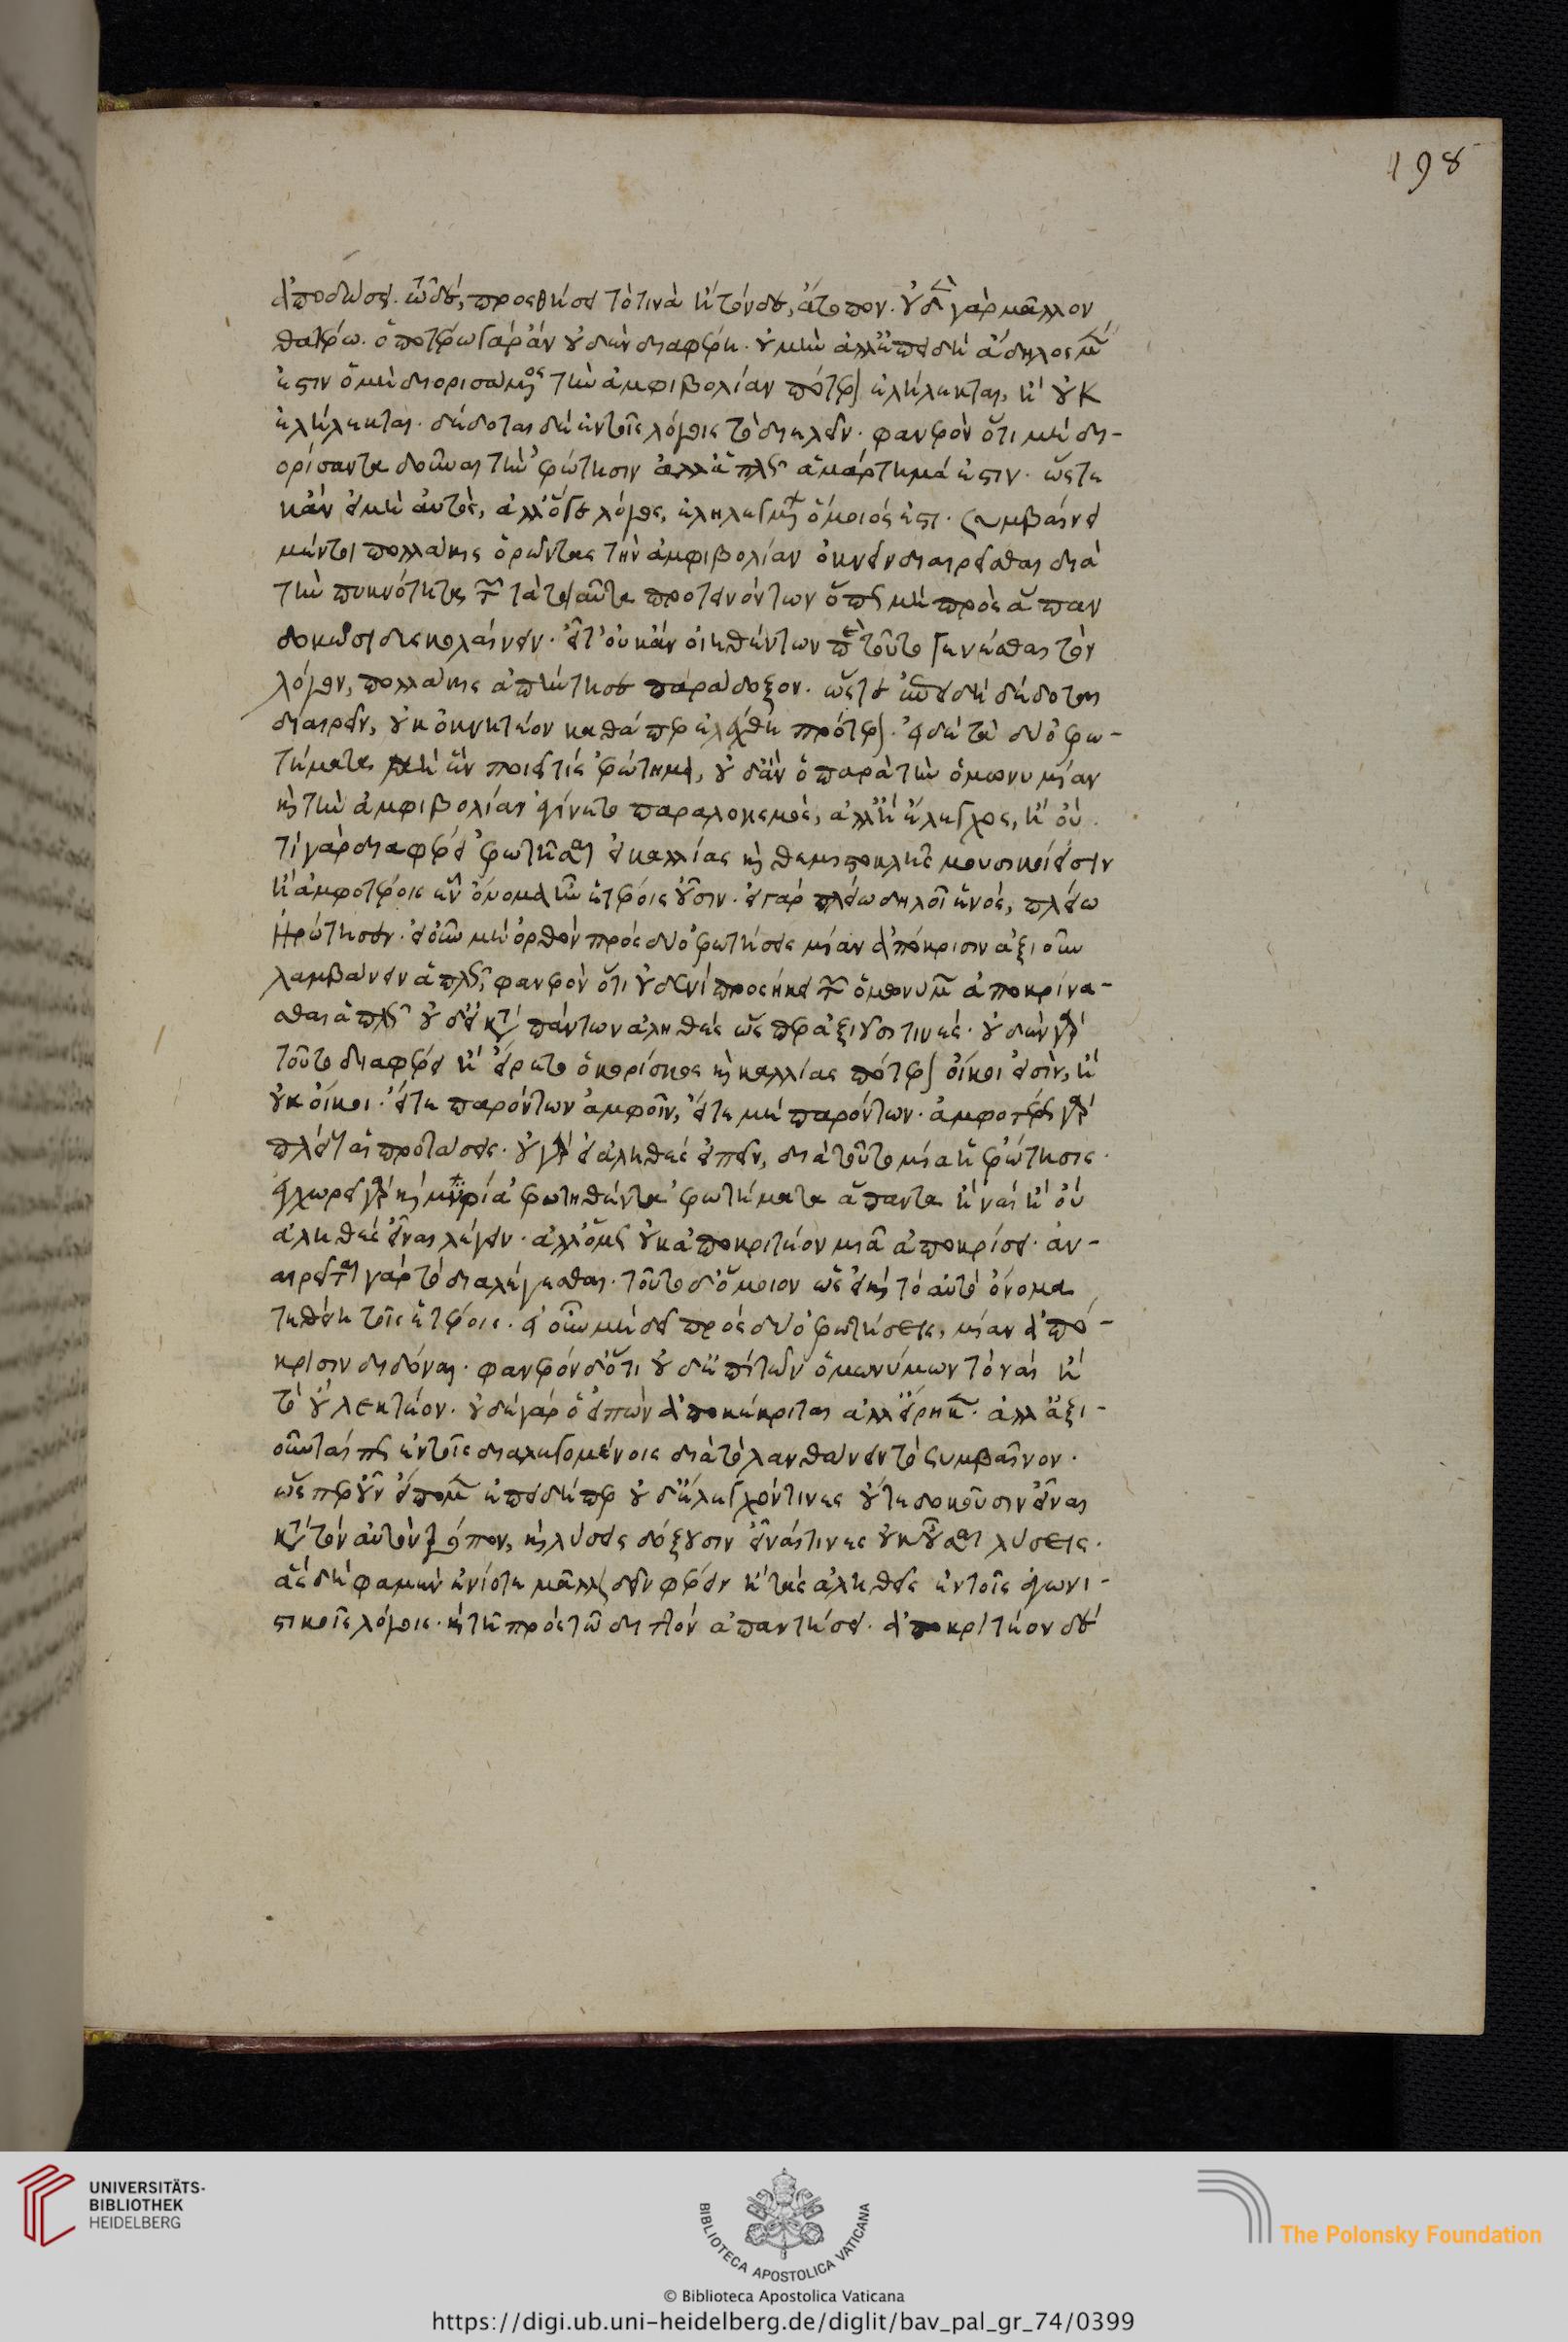 ἀποδώσει. ὧ δὲ, προσθήσει τὸ τινὰ ἢ τόνδε, ἄτοπον. οὐδὲν γὰρ μᾶλλον
θατέρω. ὁποτέρω γὰρ ἂν οὐδὲν διαφέρει. οὐ μὴν ἀλλ' ἐπειδὴ ἄδηλος μέν
ἐστιν ὁ μὴ διορισάμενος τὴν ἀμφιβολίαν πότερον ἐλήλεκται, ἢ οὐκ
ἐλήλεκται. δέδοται δὲ ἐν τοῖς λόγοις τὸ διελεῖν. φανερὸν ὅτι μὴ δι-
ορίσαντα δοῦναι τὴν ἐρώτησιν ἀλλὰ ἁπλῶς ἁμάρτημά ἐστιν. ὥστε
κἂν εἰ μὴ αὐτὸς, ἀλλ' ὅ γε λόγος, ἐληλεγμένῳ ὅμοιός ἐστι. συμβαίνει
μέντοι πολλάκις ὁρῶντας τὴν ἀμφιβολίαν ὀκνεῖν διαιρεῖσθαι διὰ
τὴν πυκνότητα τῶν τὰ τοιαῦτα προτεινόντων ὅπως μὴ πρὸς ἅπαν
δοκῶσι δυσκολαίνειν. εἶτ' οὐκ ἂν οἰηθέντων περὶ τοῦτο γενέσθαι τὸν
λόγον, πολλάκις ἀπήντησε παράδοξον. ὥστε ἐπειδὴ δέδοται
διαιρεῖν, οὐκ ὀκνητέον καθάπερ ἐλέχθη πρότερον. εἰ δὲ τὰ δύο ἐρω-
τήματα μὴ ἓν ποιεῖ τίς ἐρώτημα, οὐδ' ἂν ὁ παρὰ τὴν ὁμωνυμίαν
καὶ τὴν ἀμφιβολίαν ἐγίνετο παραλογισμὸς, ἀλλ' ἢ ἔλεγχος, ἢ οὔ.
τί γὰρ διαφέρει ἐρωτῆσαι εἰ καλλίας καὶ θεμιστοκλῆς μουσικοί εἰσιν
ἢ ἀμφοτέροις ἓν ὄνομα ἦν ἑτέροις οὖσιν. εἰ γὰρ πλείω δηλοῖ ἑνὸς, πλείω
ἠρώτησεν. εἰ οὖν μὴ ὀρθὸν πρὸς δύο ἐρωτήσεις μίαν ἀπόκρισιν ἀξιοῦν
λαμβάνειν ἁπλῶς, φανερὸν ὅτι οὐδενὶ προσήκει τῶν ὁμωνύμων ἀποκρίνα-
σθαι ἁπλῶς οὐδ' εἰ κατὰ πάντων ἀληθὲς ὥσπερ ἀξιοῦσι τινές. οὐδὲν γὰρ
τοῦτο διαφέρει ἢ εἰ ἤρετο ὁ κορίσκος καὶ καλλίας πότερον οἴκοι εἰσὶν, ἢ
οὐκ οἴκοι. εἴτε παρόντων ἀμφοῖν, εἴτε μὴ παρόντων. ἀμφοτέρως γὰρ
πλείους αἱ προτάσεις. οὐ γὰρ εἰ ἀληθὲς εἰπεῖν, διὰ τοῦτο μία ἡ ἐρώτησις.
ἐγχωρεῖ γὰρ καὶ μυρία ἐρωτηθέντα ἐρωτήματα ἅπαντα ἢ ναὶ ἢ οὐ
ἀληθὲς εἶναι λέγειν. ἀλλ' ὅμως οὐκ ἀποκριτέον μιᾶ ἀποκρίσει. ἀν-
αιρεῖται γὰρ τὸ διαλέγεσθαι. τοῦτο δ' ὅμοιον ὡς εἰ καὶ τὸ αὐτὸ ὄνομα
τεθείη τοῖς ἑτέροις. εἰ οὖν μὴ δεῖ πρὸς δύο ἐρωτήσεις, μίαν ἀπό-
κρισιν διδόναι. φανερὸν δ' ὅτι οὐδ' ἐπὶ τῶν ὁμωνύμων τὸ ναὶ ἢ
τὸ οὒ λεκτέον. οὐδὲ γὰρ ὁ εἰπὼν ἀποκέκριται ἀλλ' εἴρηκεν. ἀλλ' ἀξι-
οῦνταί πως ἐν τοῖς διαλεγομένοις διὰ τὸ λανθάνειν τὸ συμβαῖνον.
ὥσπερ οὖν εἴπομεν ἐπειδήπερ οὐδ' ἔλεγχοί τινες ὄντες δοκοῦσιν εἶναι
κατὰ τὸν αὐτὸν τρόπον, καὶ λύσεις δόξουσιν εἶναί τινες οὐκ οὖσαι λύσεις.
ἃς δή φαμεν ἐνίοτε μᾶλλον δεῖν φέρειν ἢ τὰς ἀληθεῖς ἐν τοῖς ἀγωνι-
στικοῖς λόγοις. καὶ τῆ πρὸς τὸ διττὸν ἀπαντήσει. ἀποκριτέον δὲ
198
UNIVERSITÄTS-
BIBLIOTHEK
HEIDELBERG
BIBLIOTECA APOSTOLICA VATICANA
The Polonsky Foundation
© Biblioteca Apostolica Vaticana
https://digi.ub.uni-heidelberg.de/diglit/bav_pal_gr_74/0399